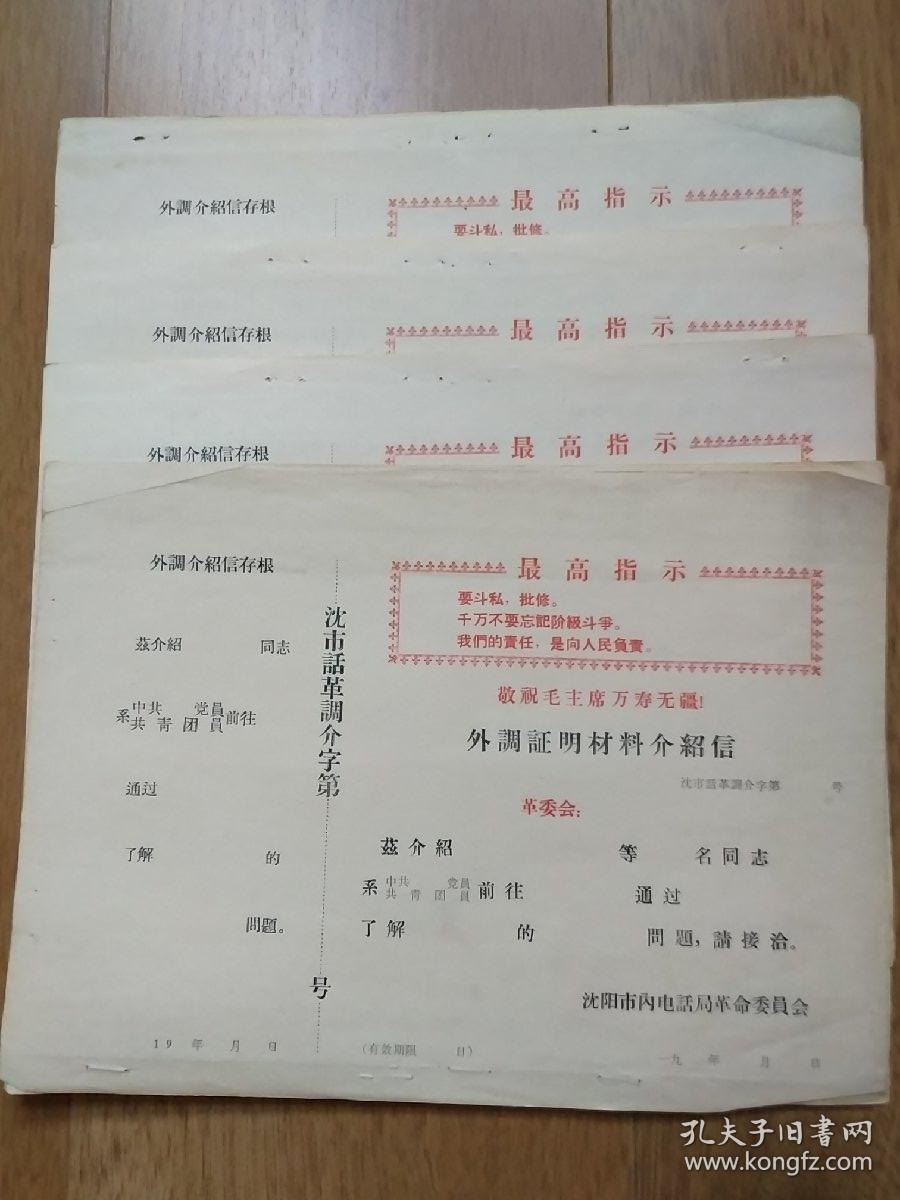 外調介紹信存根
最高指示
要斗私,批修。
外調介紹信存根
最高指示
外調介紹信存根
最高指示
外調介紹信存根
茲介紹 同志
系中共 党員
共青团員前往
通过
了解 的
問題。
19 年 月 日
沈市話革調介字第 号
最高指示
要斗私,批修。
千万不要忘記阶級斗爭。
我們的責任,是向人民負責。
敬祝毛主席万寿无疆!
外調証明材料介紹信
沈市話革調介字第 号
革委会:
茲介紹 等 名同志
系中共 党員
共青团員 前往 通过
了解 的 問題,請接洽。
沈阳市內电話局革命委員会
(有效期限 日)
一九 年 月 日
孔夫子旧书网
www.kongfz.com